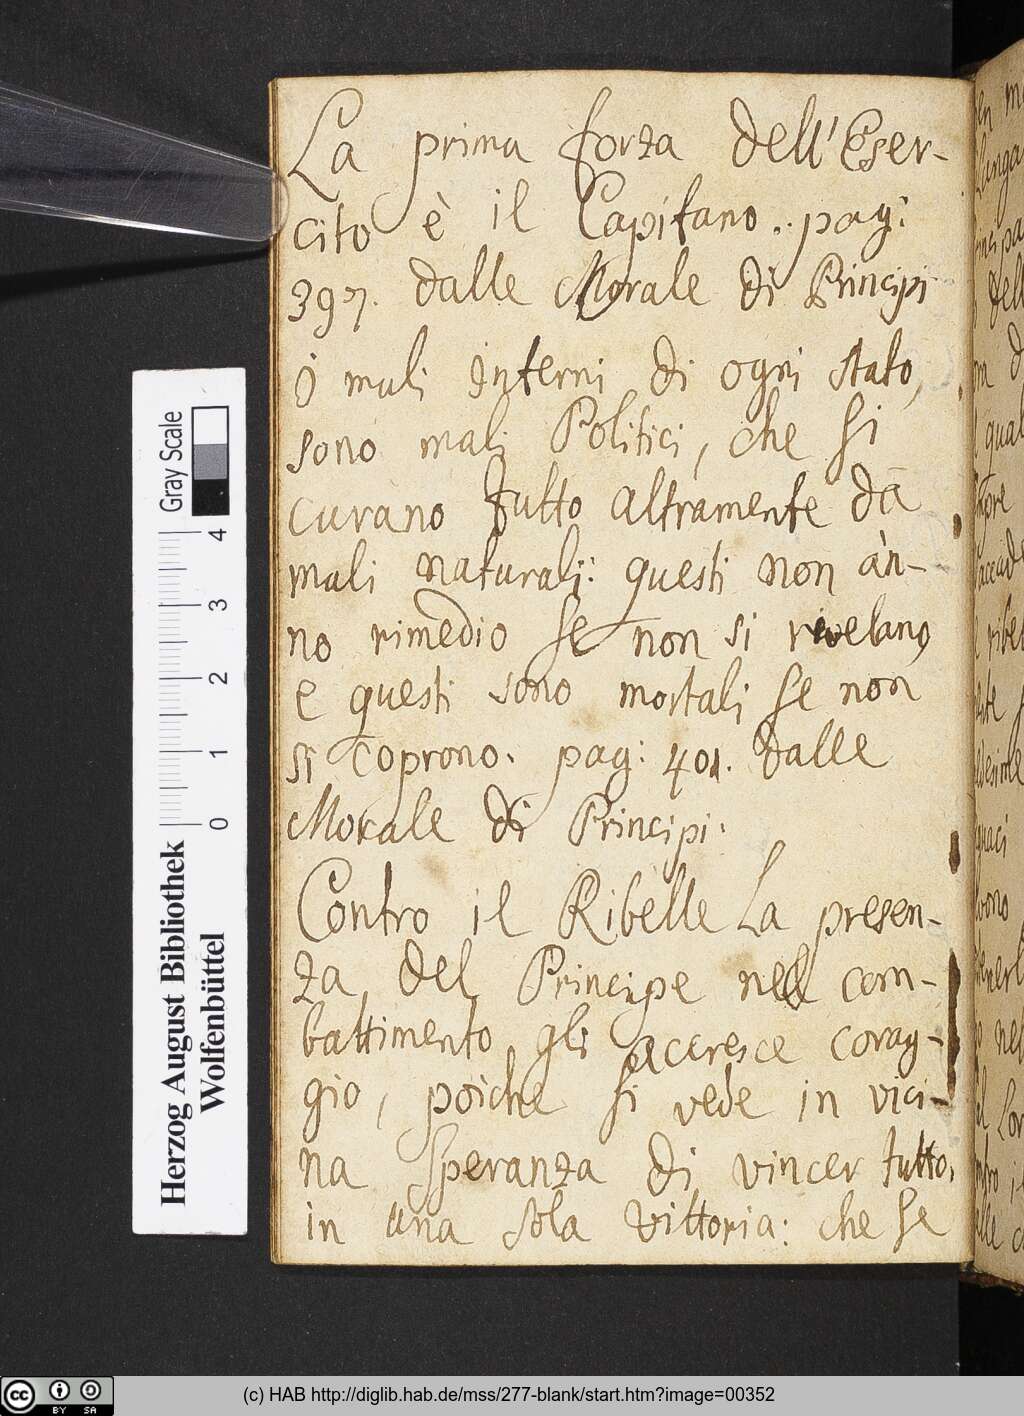 La prima forza dell'Eser-
cito è il Capitano.. pag:
397. dalle Morale di Principi
mali interni di ogni stato,
sono mali Politici, che si
curano tutto altramente da
mali naturali: questi non àn-
no rimedio se non si rivelano,
e questi sono mortali se non
si coprono. pag: 401. dalle
Morale di Principi.
Contro il Ribelle La presen-
za del Principe nel com-
battimento gli acceresce corag-
gio, poiche si vede in vici-
na speranza di vincer tutto.
in una sola vittoria: che se
Gray Scale
4
3
2
1
0
Herzog August Bibliothek
Wolfenbüttel
cc BY SA
(c) HAB http://diglib.hab.de/mss/277-blank/start.htm?image=00352